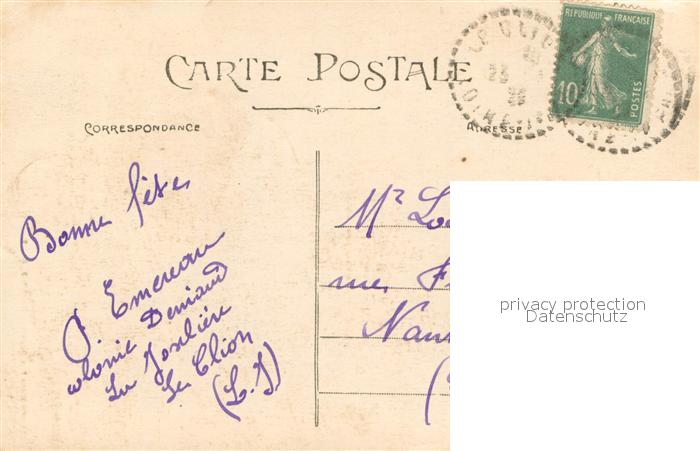 CARTE POSTALE
CORRESPONDANCE
ADRESSE
REPUBLIQUE FRANÇAISE
10
POSTES
Bonne fête
J. Emereau
colonie Deniaud
La Joselière
Le Clion
(L. I)
Mr
rue
privacy protection
Datenschutz